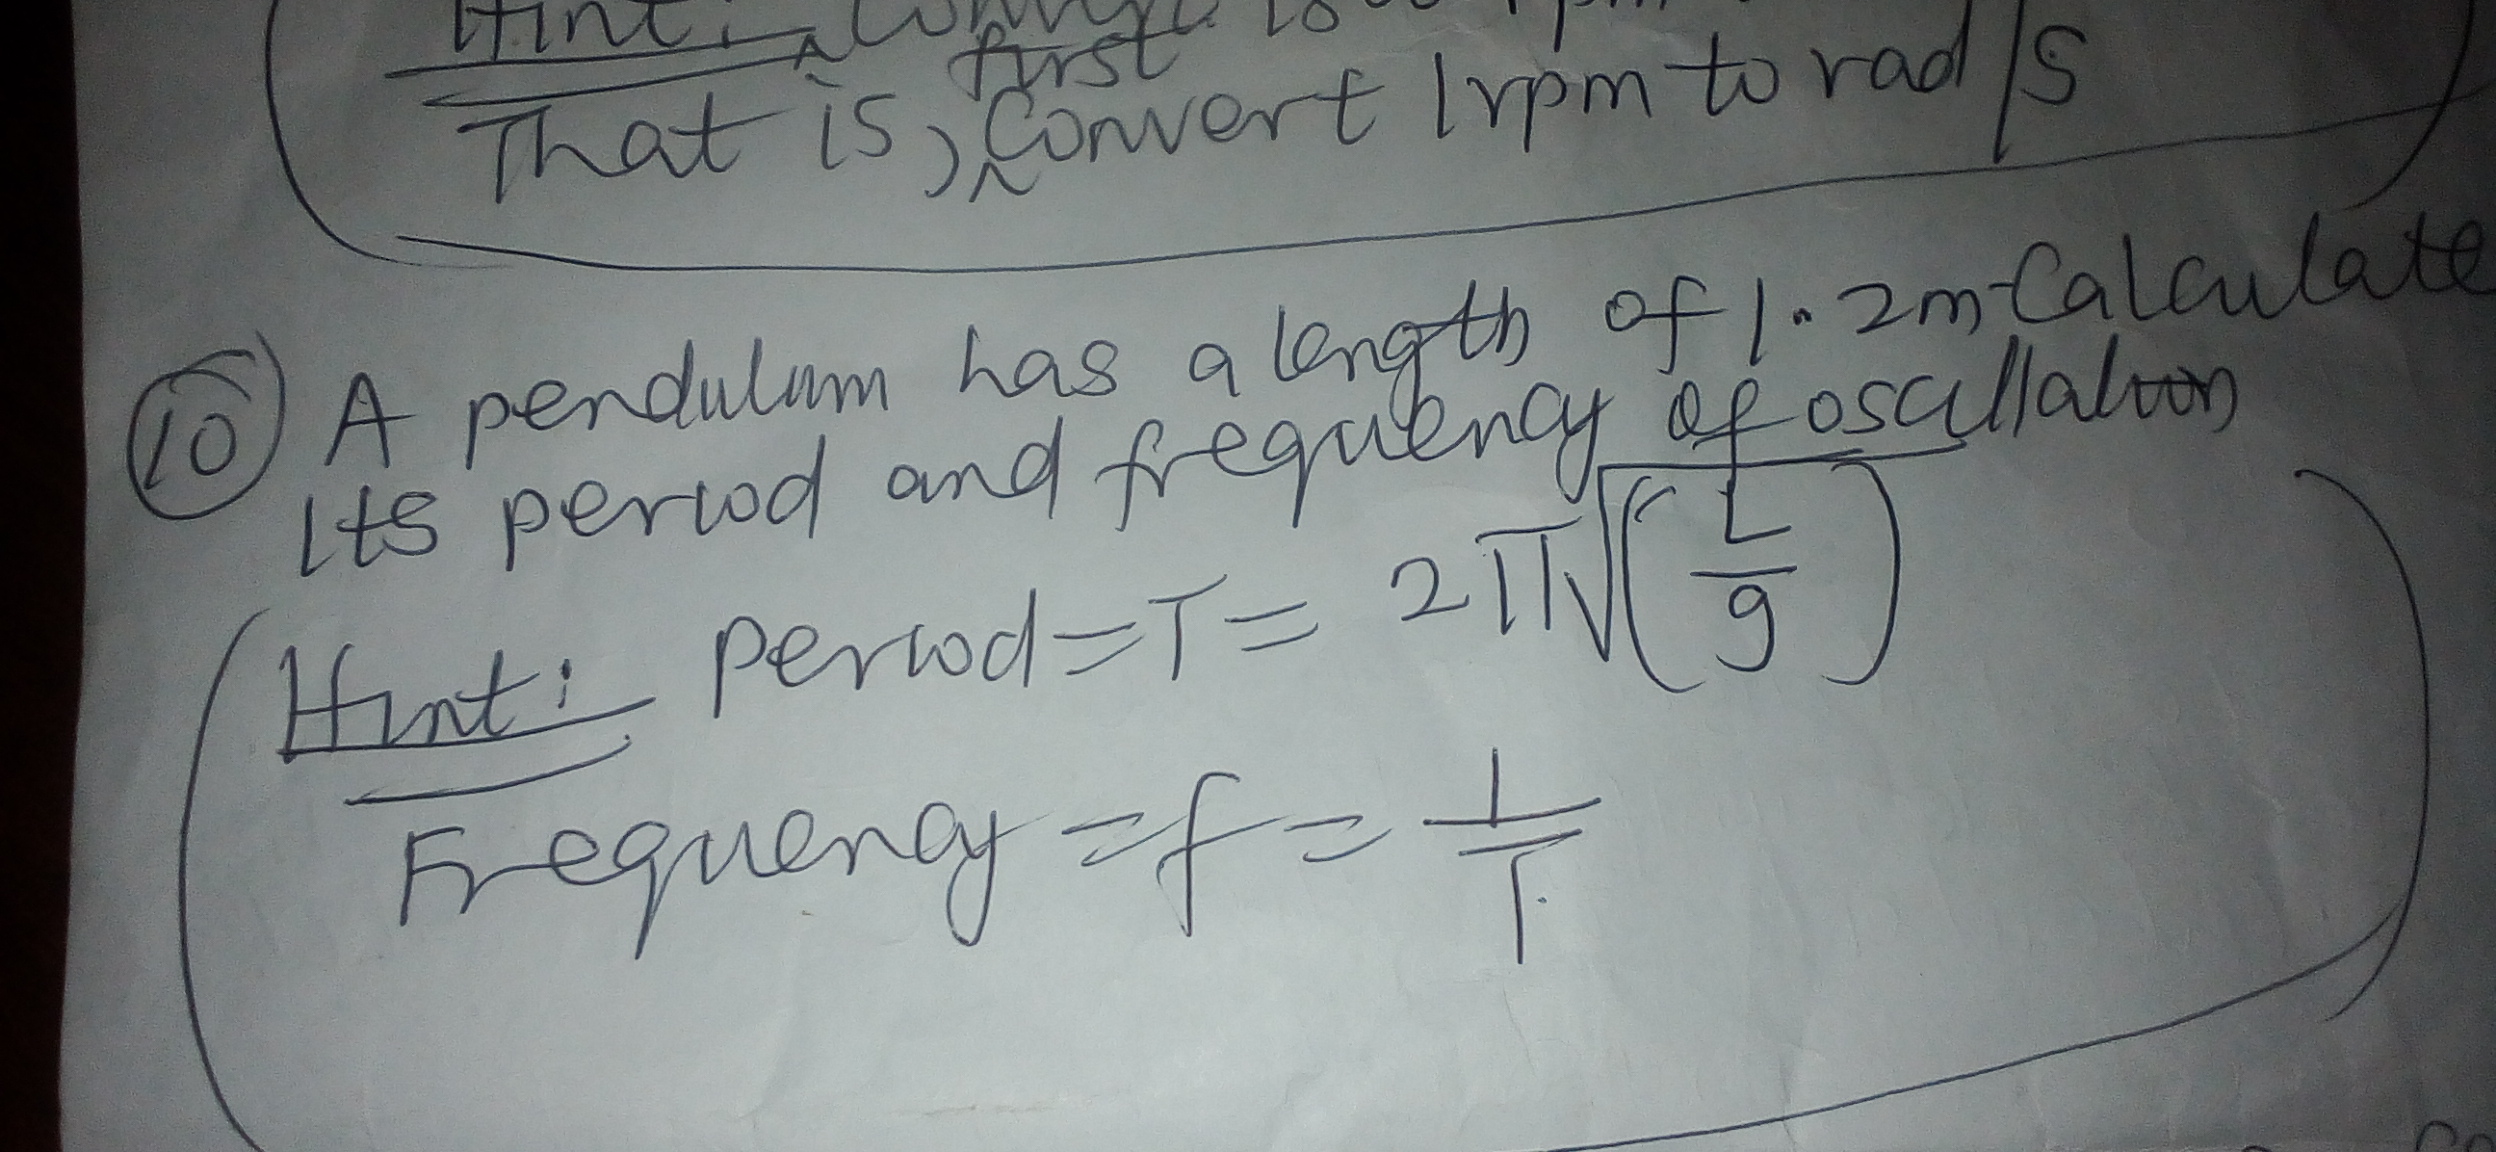 Hint:
first
That is, Convert 1rpm to rad/s
(10) A pendulum has a length of 1.2m. Calculate
its period and frequency of oscillation
Hint: period = T = 2π√(L/g)
Frequency = f = 1/T.